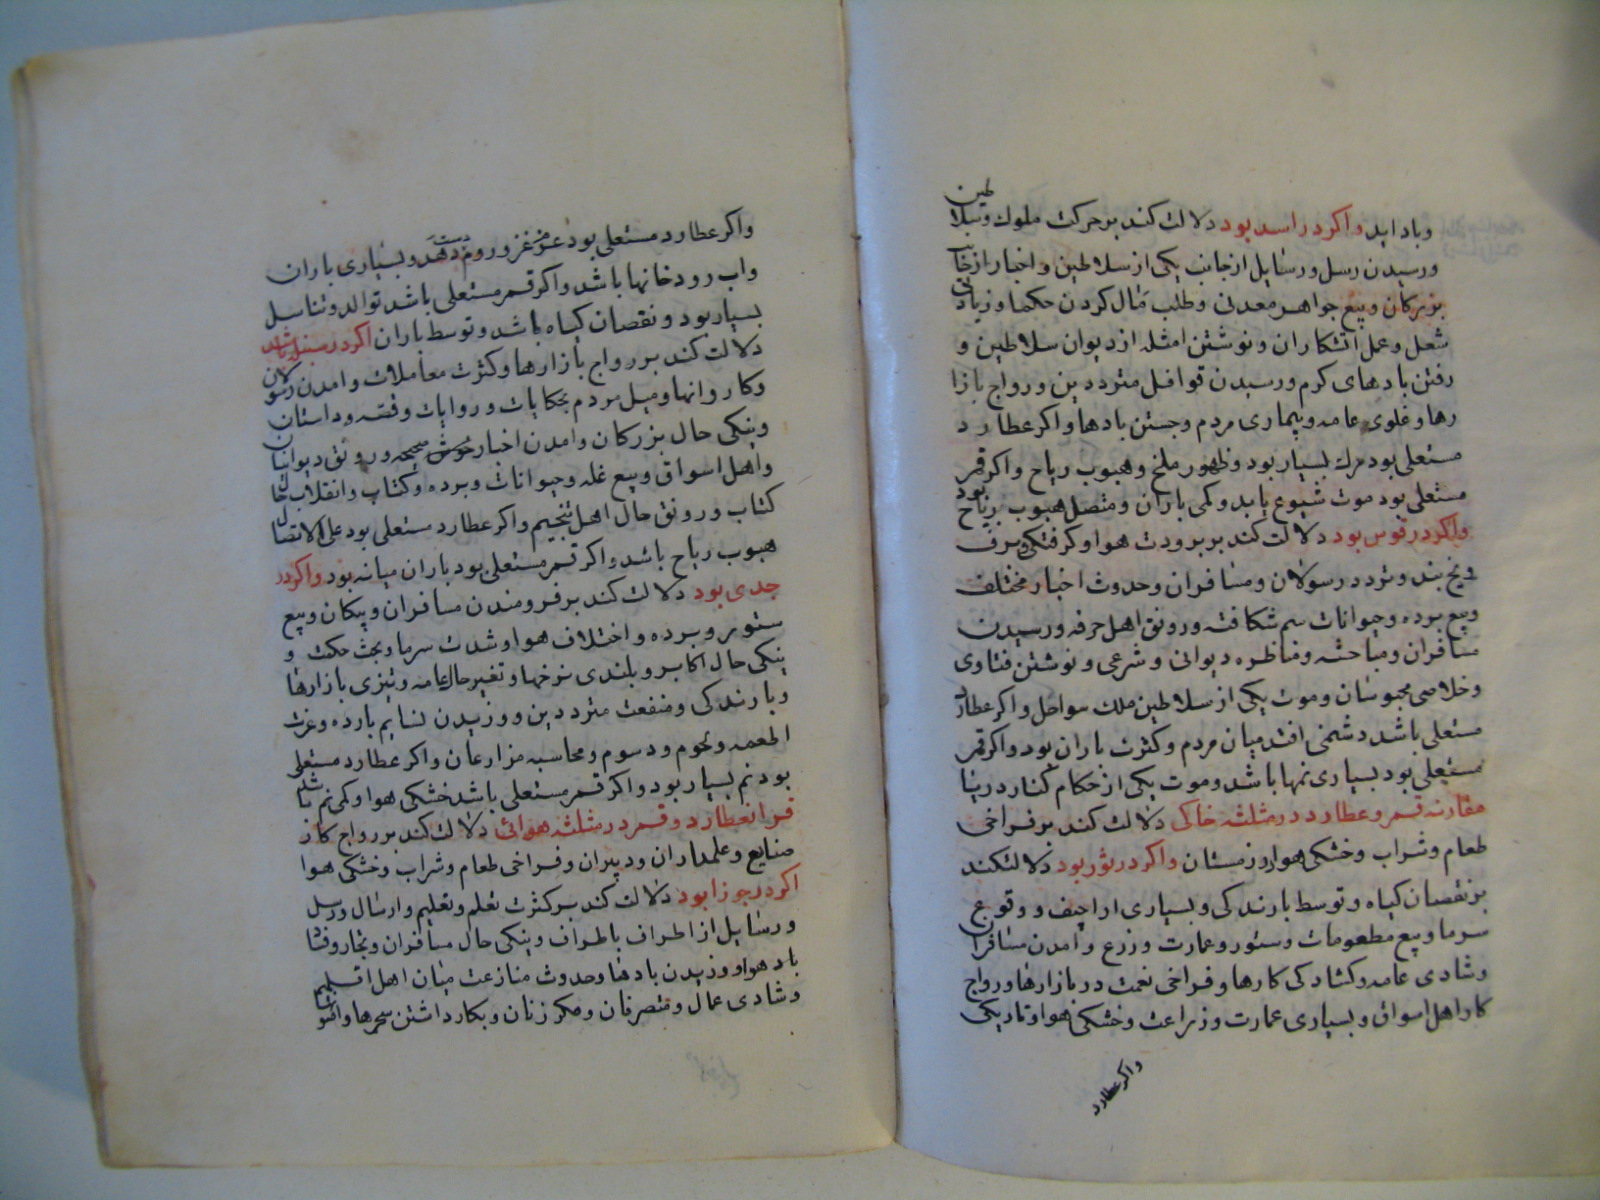 و باد اید واکر در اسد بود دلالت کند بر حرکت ملوک و سلاطین
و رسیدن رسل و رسایل از جانب یکی از سلاطین و اخبار از جانب
بزرکان و بیع جواهر معدنی و طلب مال کردن حکما و زیادتی
شغل و عمل اتشکاران و نوشتن امثله از دیوان سلاطین و
رفتن بادهای کرم و رسیدن قوافل مترددین و رواج بازا
رها و غلوی عامه و بیماری مردم و جستن بادها واکر عطارد
مستعلی بود مرک بسیار بود و ظهور ملخ و هبوب ریاح واکر قمر
مستعلی بود موت شیوع یابد و کمی باران و متصل هبوب ریاح بود
واکر در قوس بود دلالت کند بر برودت هوا و کرفتکی و برف
و یخ بند و تردد رسولان و مسافران و حدوث اخبار مختلف
و بیع برده و حیوانات سم شکافته و رونق اهل حرفه و رسیدن
مسافران و مباحثه و مناظره دیوانی و شرعی و نوشتن فتاوی
و خلاصی محبوسان و موت یکی از سلاطین ملک سواحل واکر عطارد
مستعلی باشد دشمنی افتد میان مردم و کثرت باران بود واکر قمر
مستعلی بود بسیاری نمها باشد و موت یکی از حکام کنار دریا
مقارنه قمر و عطارد در مثلثه خاکی دلالت کند بر فراخی
طعام و شراب و خشکی هوا در زمستان واکر در ثور بود دلالتکند
بر نقصان کیاه و توسط بارندکی و بسیاری اراجیف و وقوع
سرما و بیع مطعومات و ستور و عمارت و زرع و امدن مسافران
و شادی عامه و کشادکی کارها و فراخی نعمت در بازارها و رواج
کار اهل اسواق و بسیاری عمارت و زراعت و خشکی هوا و تاریکی
واکر عطارد
واکر عطارد مستعلی بود غز و روم دست دهد و بسیاری باران
واب رودخانها باشد واکر قمر مستعلی باشد توالد و تناسل
بسیار بود و نقصان کیاه باشد و توسط باران اکر در سنبله باشد
دلالت کند بر رواج بازارها و کثرت معاملات و امدن رسولان
و کاروانها و میل مردم بحکایات و روایات و قصه و داستان
و نیکی حال بزرکان و امدن اخبار خوش صحیحه و رونق دیوانیان
واهل اسواق و بیع غله و حیوانات و برده و کتاب و انقلاب حال
کتاب و رونق حال اهل تنجیم واکر عطارد مستعلی بود علی الاتصال
هبوب ریاح باشد واکر قمر مستعلی بود باران میانه بود واکر در
جدی بود دلالت کند بر فروماندن مسافران و پیکان و بیع
ستور و برده و اختلاف هوا و شدت سرما و بحث حکمت و
نیکی حال اکابر و بلندی نرخها و تغیر حال عامه و تیزی بازارها
و بارندکی و منفعت مترددین و وزیدن نسایم بارده و عزت
اطعمه و لحوم و دسوم و محاسبه مزارعان واکر عطارد مستعلی
بود نم بسیار بود واکر قمر مستعلی باشد خشکی هوا و کمی نم باشد
قران عطارد و قمر در مثلثه هوائی دلالت کند بر رواج کار
صنایع و علمداران و دبیران و فراخی طعام و شراب و خشکی هوا
اکر در جوزا بود دلالت کند بر کثرت تعلم و تعلیم و ارسال و رسل
و رسایل از اطراف باطراف و نیکی حال مسافران و تجار و فساد
باد هوا و وزیدن بادها و حدوث منازعت میان اهل اقلیم
و شادی عمال و متصرفان و مکر زنان و بکار داشتن سحرها و افسونها